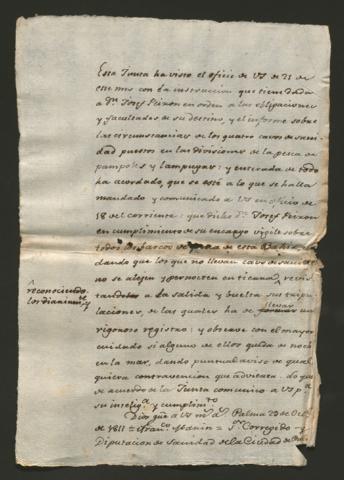 Esta Junta ha visto el oficio de VS de 21 de
este mes con la instruccion que tiene dada
a Dn. Josef Peixon en orden a las obligaciones
y facultades de su destino, y el informe sobre
las circunstancias de los quatro cavos de sani-
dad puestos en las divisiones de la pesca de
pampoles y lampugas; y enterada de todo
ha acordado, que se esté a lo que se halla
mandado y comunicado a VS en oficio de
18 del corriente: que dicho Dn. Josef Peixon
en cumplimiento de su encargo vigile sobre
todos los barcos de pesca de esta Bahia,
dando que los que no llevan cavo de sanidad
no se alejen y pernocten en
reconociendo
los diariamte. y
a la salida y buelta sus tripu-
llevar
laciones, de las quales ha de formar un
rigoroso registro; y observe con el mayor
cuidado si alguno de ellos queda de noche
en la mar, dando puntual aviso de qual
quiera contravencion que advierta. Lo que
de acuerdo de la Junta comunico a VS pa.
su inteliga. y cumplimto.
Dios gue. a VS ms. as. Palma 23 de Octe.
de 1811 = Franco. = Sr. Corregidor y
Diputacion de Sanidad de la Ciudad de